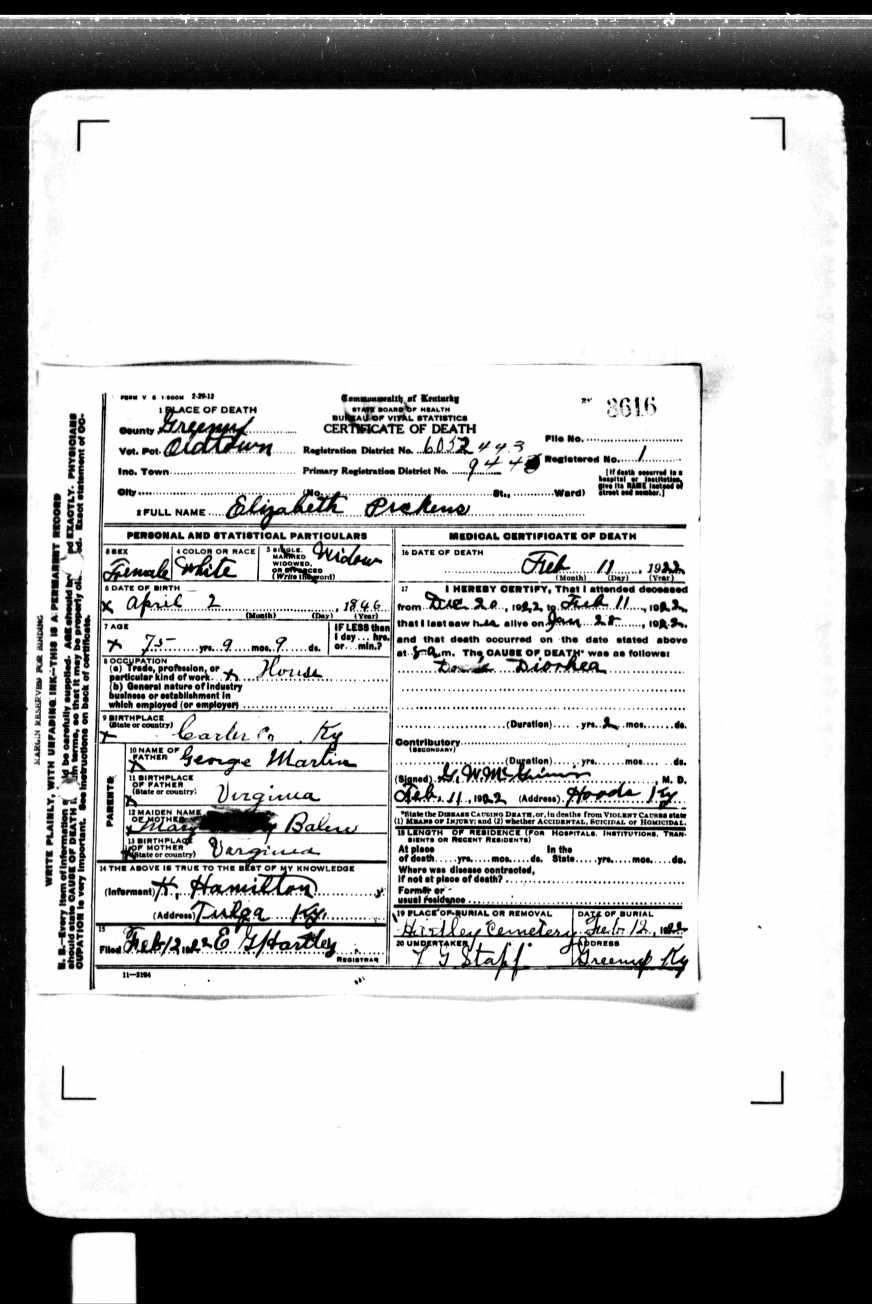 FORM V S 1-500M 2-29-12
Commonwealth of Kentucky
STATE BOARD OF HEALTH
BUREAU OF VITAL STATISTICS
CERTIFICATE OF DEATH
8616
1 PLACE OF DEATH
County Greenup
Vot. Pct. Oldtown
Inc. Town
City
Registration District No. 6052 443
Primary Registration District No.
File No.
Registered No. 1
[If death occurred in a hospital or institution, give its NAME instead of street and number.]
(No. St., Ward)
2 FULL NAME Elizabeth Pickens
PERSONAL AND STATISTICAL PARTICULARS
3 SEX Female
4 COLOR OR RACE White
5 SINGLE, MARRIED WIDOWED, OR DIVORCED (Write the word) Widow
6 DATE OF BIRTH
April 2, 1846
(Month) (Day) (Year)
7 AGE
75 yrs. 9 mos. 9 ds.
IF LESS than 1 day... hrs. or... min.?
8 OCCUPATION
(a) Trade, profession, or particular kind of work House
(b) General nature of industry
business or establishment in
which employed (or employer)
9 BIRTHPLACE
(State or country)
Carter Co Ky
PARENTS
10 NAME OF FATHER George Martin
11 BIRTHPLACE OF FATHER (State or country) Virginia
12 MAIDEN NAME OF MOTHER Mary
13 BIRTHPLACE OF MOTHER (State or country) Varginia
14 THE ABOVE IS TRUE TO THE BEST OF MY KNOWLEDGE
(Informant) H. Hamilton
(Address) Ky.
15
Filed Feb 12 1922 E G Hartley
REGISTRAR
11-3184
MEDICAL CERTIFICATE OF DEATH
16 DATE OF DEATH
Feb 11, 1922
(Month) (Day) (Year)
17 I HEREBY CERTIFY, That I attended deceased
from Dec 20, 1922, to Feb 11, 1922,
that I last saw her alive on Jan 28, 1922,
and that death occurred on the date stated above
at 8 a.m. The CAUSE OF DEATH* was as follows:
Diorrhea
(Duration) yrs. 2 mos. ds.
Contributory
(SECONDARY)
(Duration) yrs. mos. ds.
(Signed) G. W. , M. D.
Feb. 11, 1922 (Address) Hoods Ky
*State the DISEASE CAUSING DEATH, or, in deaths from VIOLENT CAUSES state
(1) MEANS OF INJURY; and (2) whether ACCIDENTAL, SUICIDAL or HOMICIDAL.
18 LENGTH OF RESIDENCE (FOR HOSPITALS, INSTITUTIONS, TRANSIENTS OR RECENT RESIDENTS)
At place of death yrs. mos. ds. In the State yrs. mos. ds.
Where was disease contracted,
if not at place of death?
Former or
usual residence
19 PLACE OF BURIAL OR REMOVAL
Hartley Cemetery
DATE OF BURIAL
Feb. 12, 1922
20 UNDERTAKER
T G Stapf
ADDRESS
Greenup Ky
MARGIN RESERVED FOR BINDING
WRITE PLAINLY, WITH UNFADING INK—THIS IS A PERMANENT RECORD
N. B.—Every item of information should be carefully supplied. AGE should be stated EXACTLY. PHYSICIANS
should state CAUSE OF DEATH in plain terms, so that it may be properly classified. Exact statement of OC-
CUPATION is very important. See instructions on back of certificate.